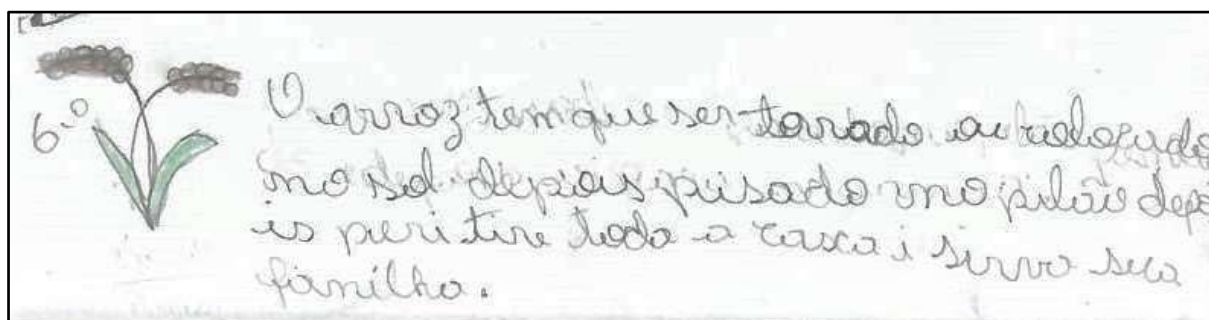 6.º
O arroz tem que ser torrado ou colocado
no sol depois pisado no pilão depo
is peri tire toda a casca i sirva sua
familha.